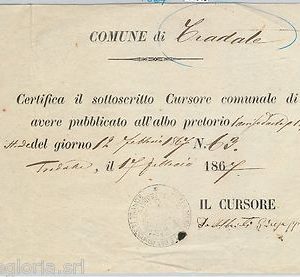 COMUNE di Tradate
Certifica il sottoscritto Cursore comunale di
avere pubblicato all'albo pretorio
del giorno 12 febbraio 1867 N. 63
Tradate, il 17 febbraio 1867
IL CURSORE
gloria.srl